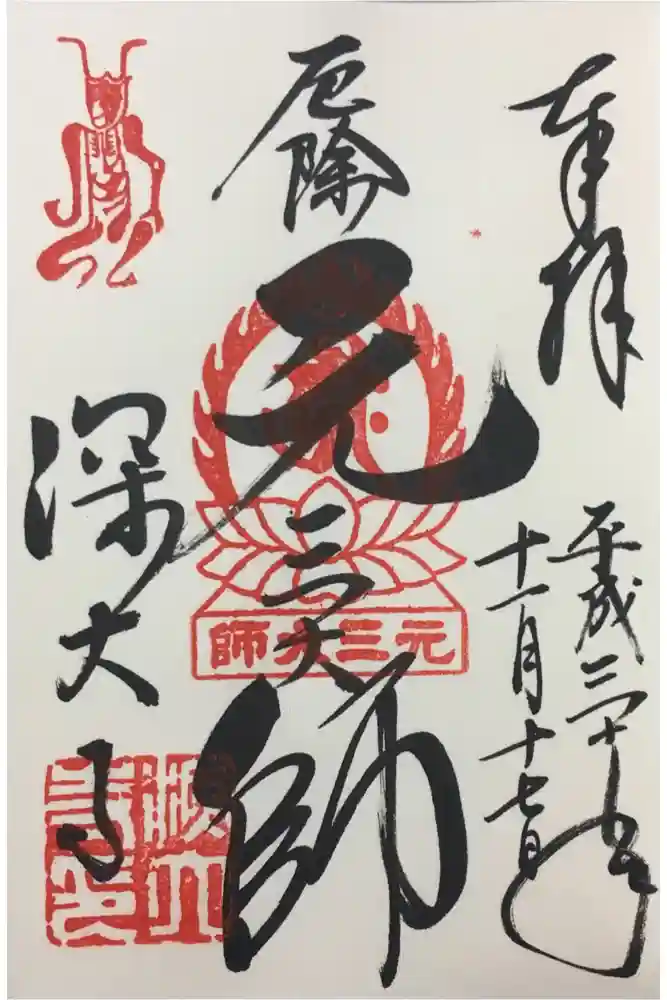 奉拝
平成三十年
十一月十七日
厄除
元三大師
元三大師
深大寺